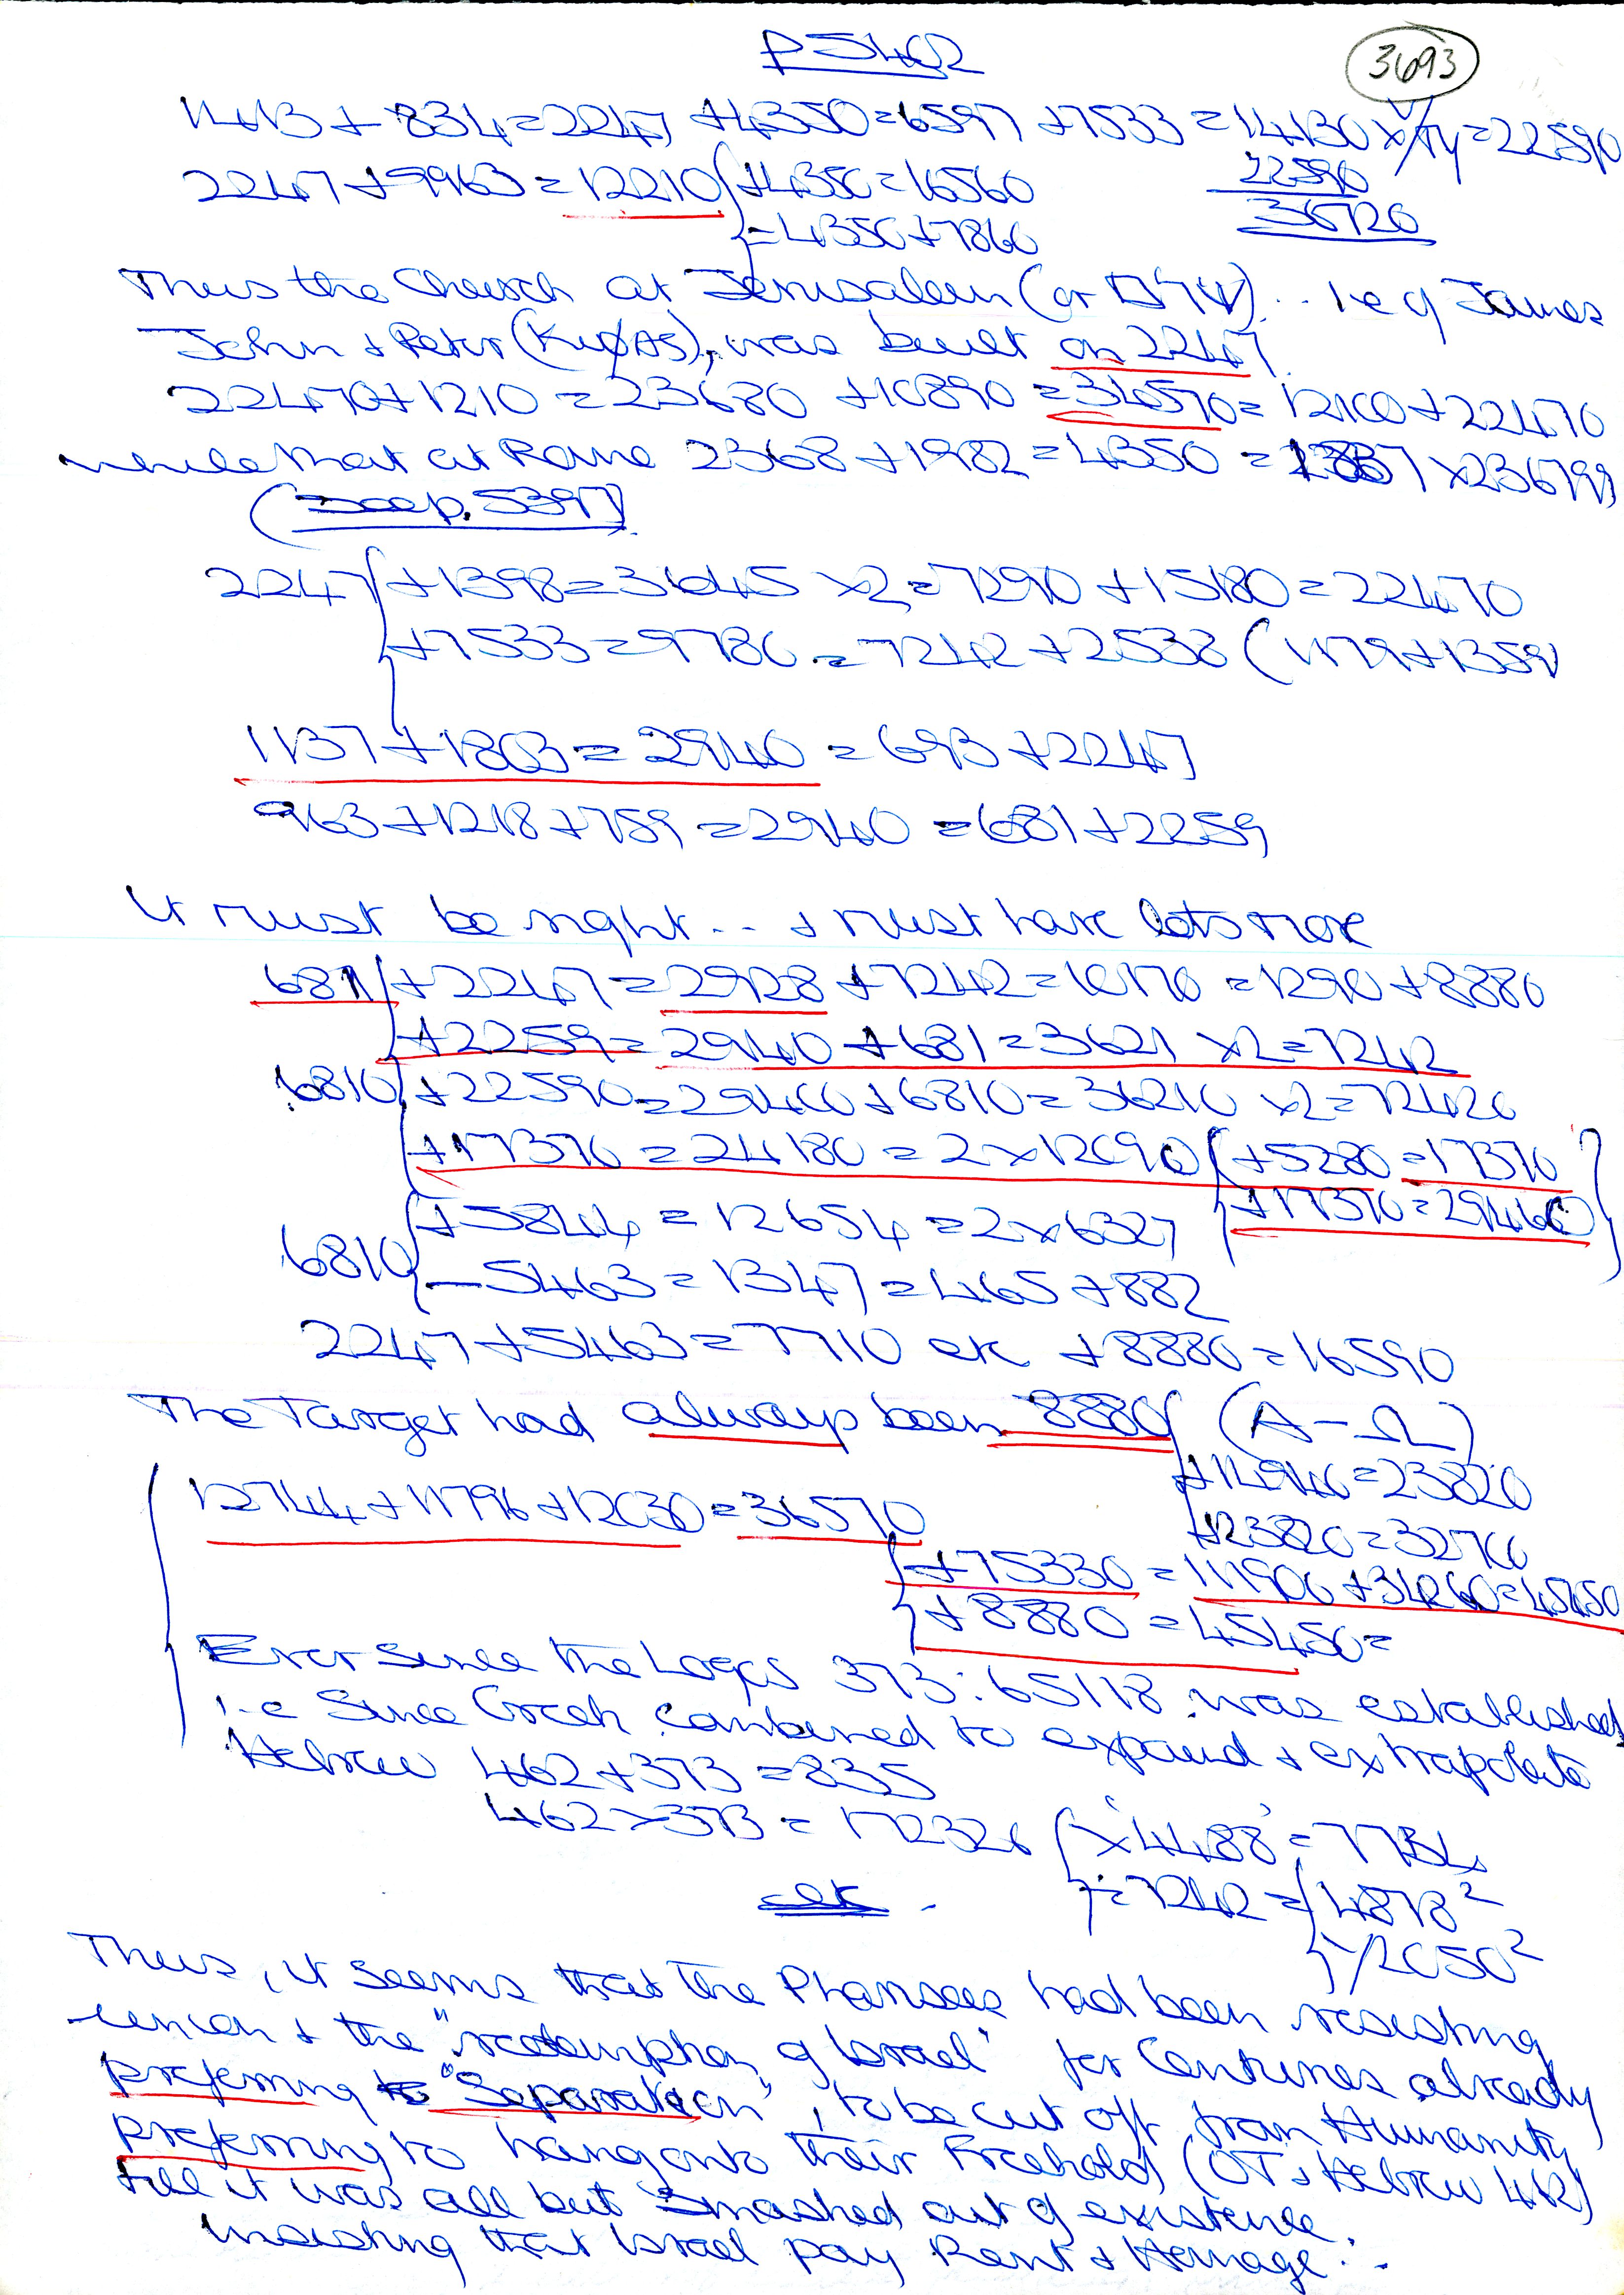 P5462
3693
1413 + 834 = 2247 + 4350 = 6597 + 7533 = 14130 = 22590
2247 + 9963 = 12210 + 4350 = 16560
22590
= 4350 + 7860
36720
Thus the Church at Jerusalem (or .. i.e of James
John & Peter , was built on 2247
22470 + 1210 = 23680 + 10890 = 34570 = 12100 + 22470
while that at Rome 2368 + 1982 = 4350 =
(See p. 5397)
2247 + 1398 = 3645 x2 = 7290 + 15180 = 22470
+ 7533 = 9780 = 7242 + 2538 (1179 + 1359)
1137 + 1803 = 2940 = 693 + 2247
963 + 1218 + 759 = 2940 = 681 + 2259
It must be right .. & must have lots more
681 + 2247 = 2928 + 7242 = 10170 = 1290 + 8880
+ 2259 = 2940 + 681 = 3621 x2 = 7242
6810 + 22590 = 29400 + 6810 = 36210 x2 = 72420
+ 17370 = 24180 = 2 x 12090 + 5280 = 17370
+ 17370 = 29460
+ 5844 = 12654 = 2 x 6327
6810
- 5463 = 1347 = 465 + 882
2247 + 5463 = 7710 etc + 8880 = 16590
The Target had always been 8880 (A - Ω)
+ 14940 = 23820
12744 + 11796 + 12030 = 36570
+ 23820 = 32700
+ 75330 = 111900
+ 8880 = 45450 =
Ever since the Logos 373 : 65118 was established
i.e Since Greek combined to expand & extrapolate
Hebrew 462 + 373 = 835
462 x 373 = 172326 x '4488' = 7734
÷ 7242 = 4878²
etc.
Thus, it seems that the Pharisees had been resisting
union & the "redemption of Israel" for Centuries already
preferring "Separation", to be cut off from Humanity
preferring to hang onto their Freehold (OT & Hebrew 462)
till it was all but Smashed out of existence.
insisting that Israel pay Rent & Homage.